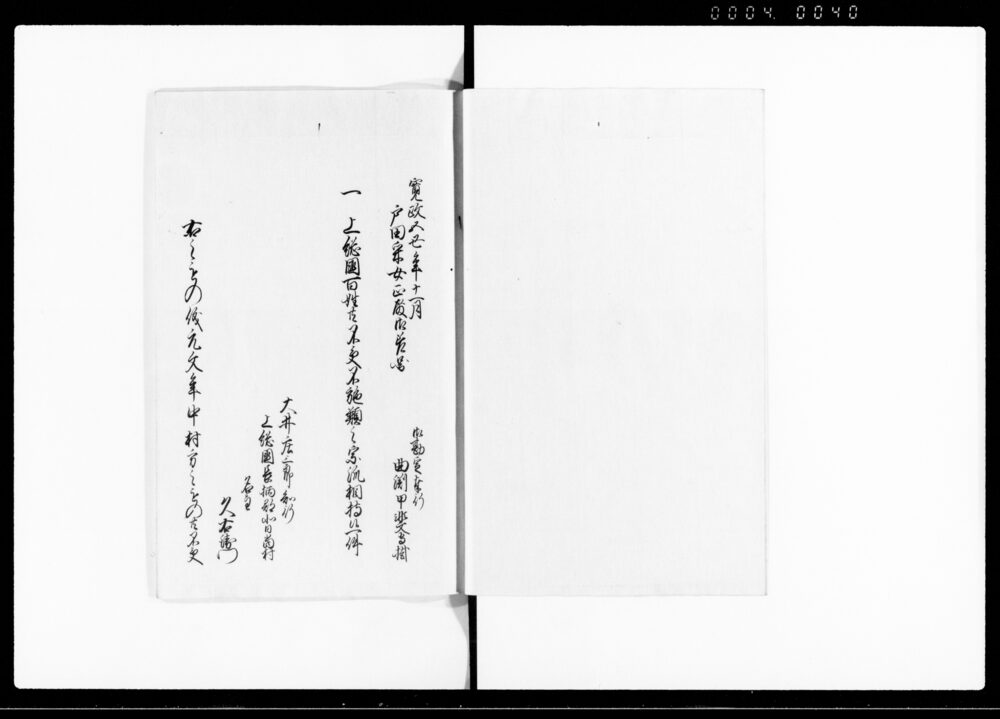 0004 0040
寛政五丑年十一月
戸田采女正殿御差図
御勘定奉行
曲渕甲斐守掛
一 上総國百姓共不受不施類之宗流相持候一件
大井庄三郎知行
上総國長柄郡
名主
久右衛門
右之もの儀元文年中村方之もの共不受